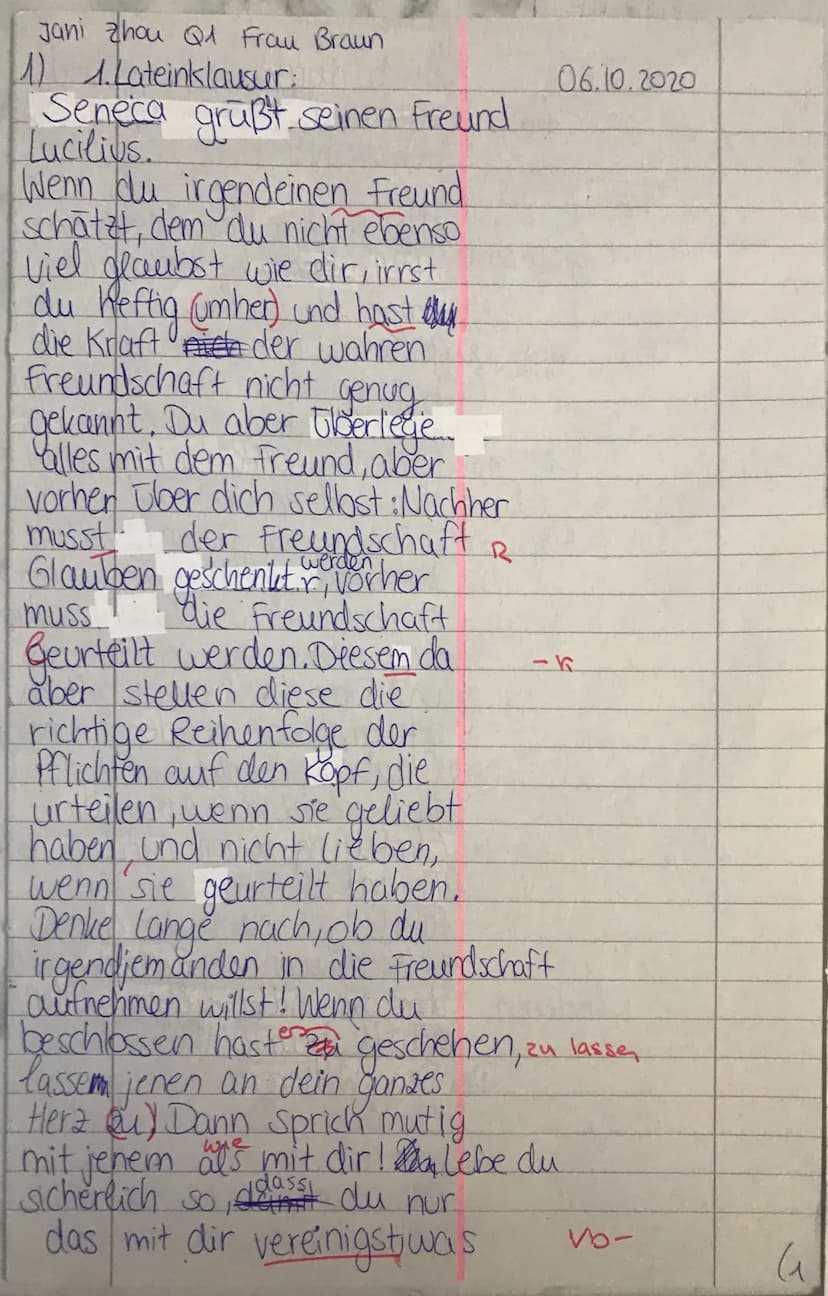 Jani Zhou Q1 Frau Braun
1) 1. Lateinklausur: 06.10.2020
Seneca grüßt seinen Freund
Lucilius.
Wenn du irgendeinen Freund
schätzt, dem du nicht ebenso
viel glaubst wie dir, irrst
du heftig (umher) und hast
die Kraft nich der wahren
Freundschaft nicht genug
gekannt. Du aber überlege
alles mit dem Freund, aber
vorher über dich selbst: Nachher
musst der Freundschaft R
Glauben geschenkt werden, vorher
muss die Freundschaft
Geurteilt werden. Diesem da -K
aber stellen diese die
richtige Reihenfolge der
Pflichten auf den Kopf, die
urteilen, wenn sie geliebt
haben, und nicht lieben,
wenn sie geurteilt haben.
Denke lange nach, ob du
irgendjemanden in die Freundschaft
aufnehmen willst! Wenn du
beschlossen hast es zu geschehen, zu lassen
lassen jenen an dein ganzes
Herz (zu) Dann sprich mutig
mit jenem als wie mit dir! lebe du
sicherlich so, damit dass du nur
das mit dir vereinigst, was Vo-